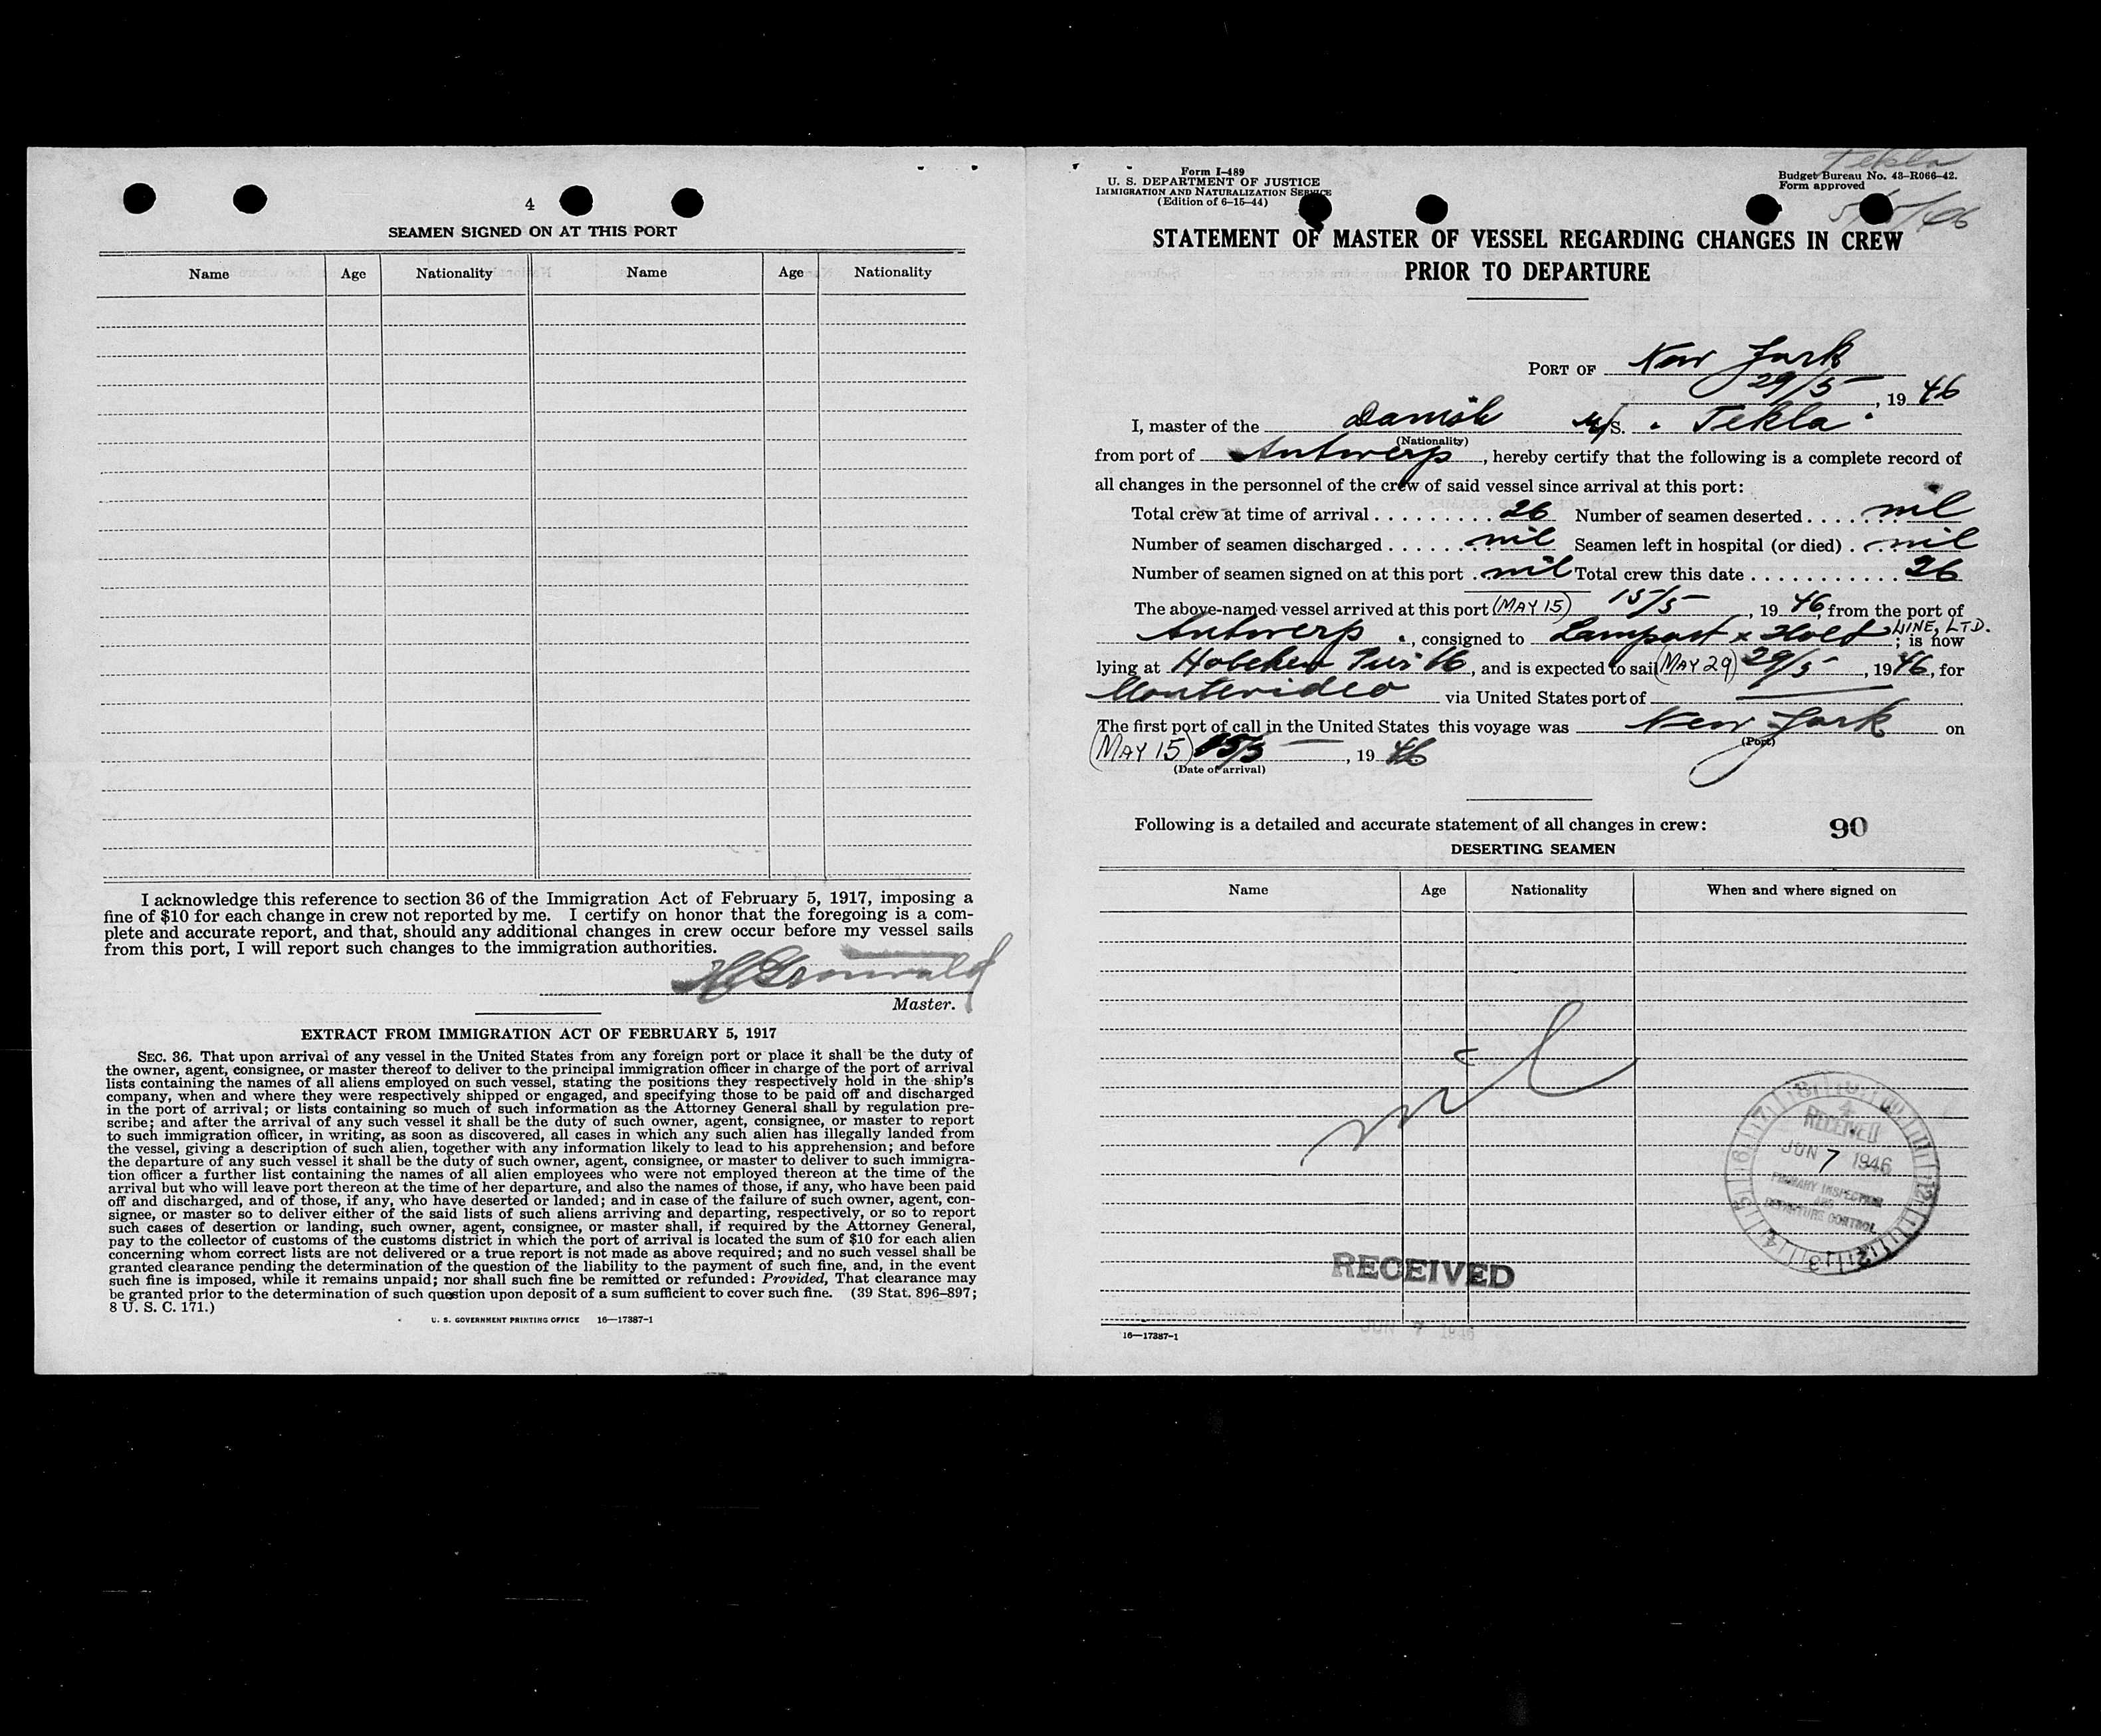 4
SEAMEN SIGNED ON AT THIS PORT
Name Age Nationality Name Age Nationality
I acknowledge this reference to section 36 of the Immigration Act of February 5, 1917, imposing a
fine of $10 for each change in crew not reported by me. I certify on honor that the foregoing is a com-
plete and accurate report, and that, should any additional changes in crew occur before my vessel sails
from this port, I will report such changes to the immigration authorities.
Master.
EXTRACT FROM IMMIGRATION ACT OF FEBRUARY 5, 1917
SEC. 36. That upon arrival of any vessel in the United States from any foreign port or place it shall be the duty of
the owner, agent, consignee, or master thereof to deliver to the principal immigration officer in charge of the port of arrival
lists containing the names of all aliens employed on such vessel, stating the positions they respectively hold in the ship's
company, when and where they were respectively shipped or engaged, and specifying those to be paid off and discharged
in the port of arrival; or lists containing so much of such information as the Attorney General shall by regulation pre-
scribe; and after the arrival of any such vessel it shall be the duty of such owner, agent, consignee, or master to report
to such immigration officer, in writing, as soon as discovered, all cases in which any such alien has illegally landed from
the vessel, giving a description of such alien, together with any information likely to lead to his apprehension; and before
the departure of any such vessel it shall be the duty of such owner, agent, consignee, or master to deliver to such immigra-
tion officer a further list containing the names of all alien employees who were not employed thereon at the time of the
arrival but who will leave port thereon at the time of her departure, and also the names of those, if any, who have been paid
off and discharged, and of those, if any, who have deserted or landed; and in case of the failure of such owner, agent, con-
signee, or master so to deliver either of the said lists of such aliens arriving and departing, respectively, or so to report
such cases of desertion or landing, such owner, agent, consignee, or master shall, if required by the Attorney General,
pay to the collector of customs of the customs district in which the port of arrival is located the sum of $10 for each alien
concerning whom correct lists are not delivered or a true report is not made as above required; and no such vessel shall be
granted clearance pending the determination of the question of the liability to the payment of such fine, and, in the event
such fine is imposed, while it remains unpaid; nor shall such fine be remitted or refunded: Provided, That clearance may
be granted prior to the determination of such question upon deposit of a sum sufficient to cover such fine. (39 Stat. 896–897;
8 U. S. C. 171.)
U. S. GOVERNMENT PRINTING OFFICE 16—17387-1
Tekla
Form I-489
U. S. DEPARTMENT OF JUSTICE
IMMIGRATION AND NATURALIZATION SERVICE
(Edition of 6-15-44)
Budget Bureau No. 43-R066-42.
Form approved
5/15/46
STATEMENT OF MASTER OF VESSEL REGARDING CHANGES IN CREW
PRIOR TO DEPARTURE
PORT OF New York
29/5, 19 46
I, master of the Danish M/S. "Tekla"
(Nationality)
from port of Antwerp, hereby certify that the following is a complete record of
all changes in the personnel of the crew of said vessel since arrival at this port:
Total crew at time of arrival 26 Number of seamen deserted nil
Number of seamen discharged nil Seamen left in hospital (or died) nil
Number of seamen signed on at this port nil Total crew this date 26
The above-named vessel arrived at this port (MAY 15) 15/5, 19 46, from the port of
Antwerp, consigned to Lamport & Holt LINE, LTD.; is now
lying at Hoboken Pier 16, and is expected to sail (MAY 29) 29/5, 19 46, for
Montevideo via United States port of
The first port of call in the United States this voyage was New York on
(Port)
(MAY 15) 15/5, 19 46
(Date of arrival)
Following is a detailed and accurate statement of all changes in crew: 90
DESERTING SEAMEN
Name Age Nationality When and where signed on
nil
RECEIVED
JUN 7 1946
PRIMARY INSPECTION
AND
DEPARTURE CONTROL
RECEIVED
JUN 7 1946
16—17387-1